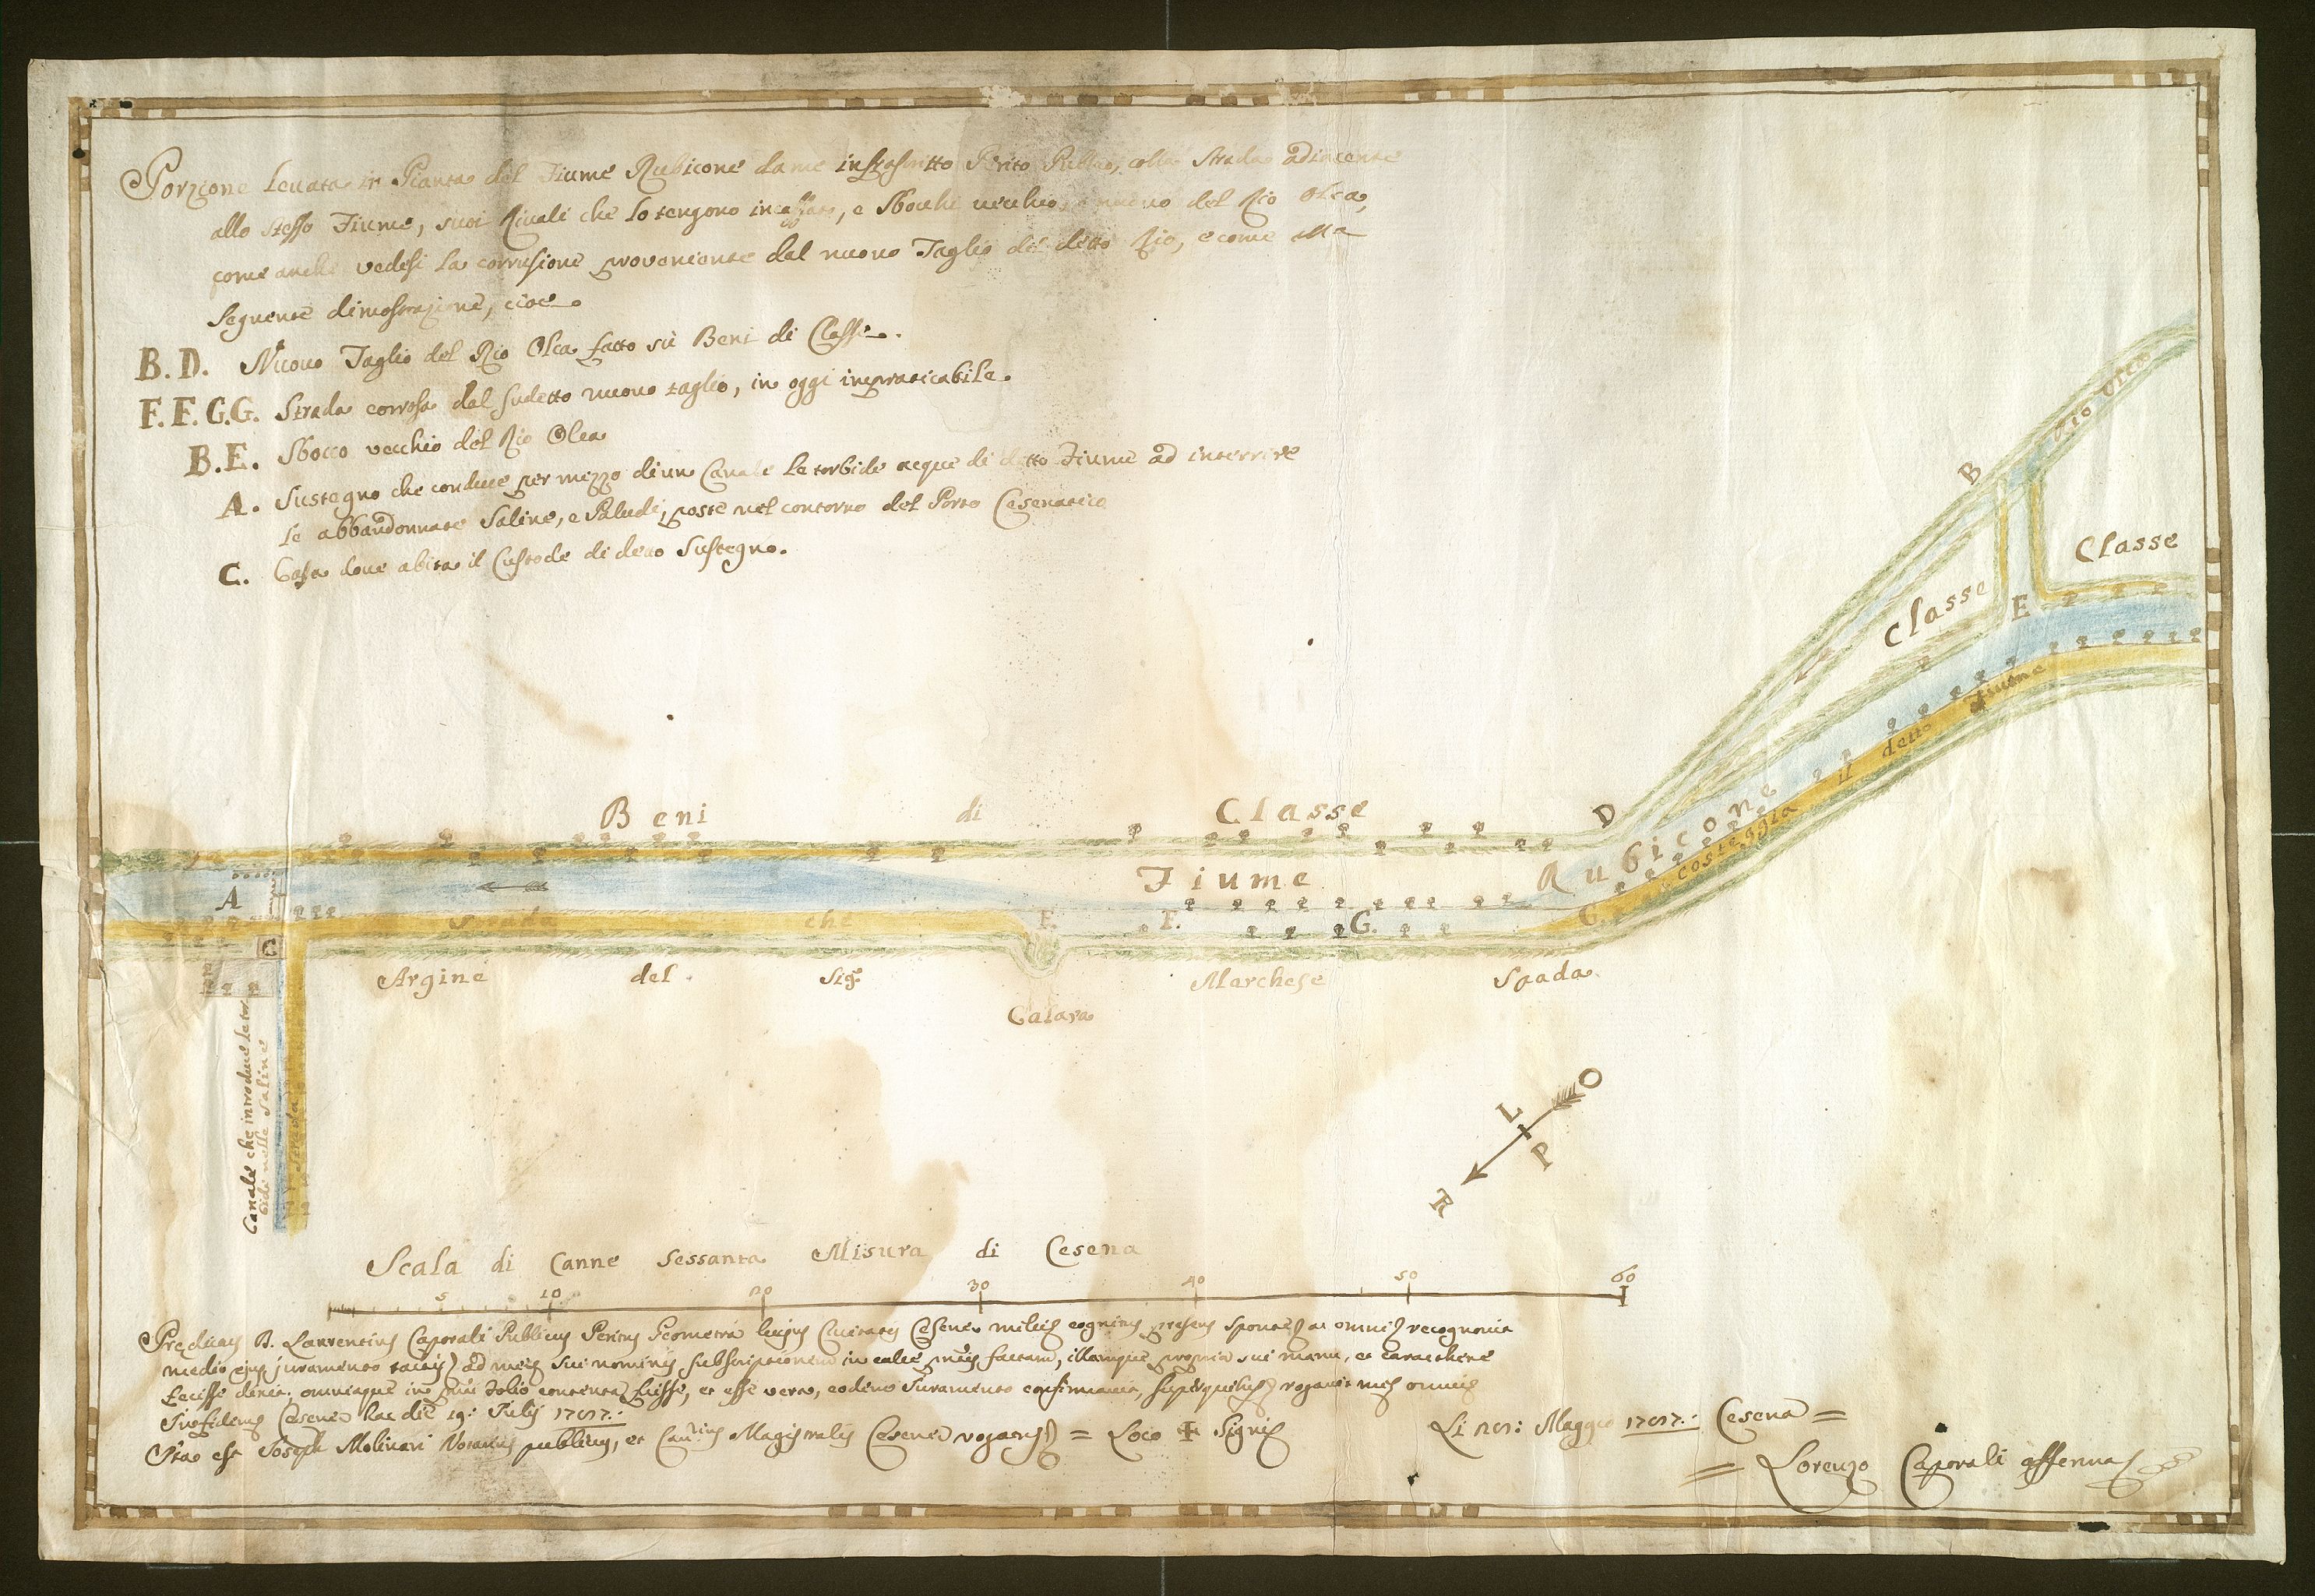 Porzione Levata in Pianta del Fiume Rubicone da me infrascritto Perito Publico, colla Strada adiacente
allo stesso Fiume, suoi Rivali che lo tengono incassato, e Sbocchi vecchio, e nuovo del Rio Olca,
come anche vedesi la corrosione proveniente dal nuovo Taglio di detto Rio, e come alla
seguente dimostrazione, cioe
B. D. Nuovo Taglio del Rio Olca fatto sù Beni di Classe.
F. F. G. G. Strada corrosa dal sudetto nuovo taglio, in oggi impraticabile.
B. E. Sbocco vecchio del Rio Olca
A. Sustegno che conduce per mezzo di un Canale le torbide acque di detto Fiume ad interrire
le abbandonnate Saline, e Paludi, poste nel contorno del Porto Cesenatico
C. Casa dove abita il Custode di detto Sustegno.
Rio Olca
B
Classe
Classe
E
D
Beni di Classe
Fiume Rubicone
A
Strada che
F. F. G. G.
costeggia il detto Fiume
C
Argine del Sig.e Marchese Spada.
Calara
Canale che introduce le tor
bide nelle Saline
Strada
O
L
P
Scala di Canne Sessanta Misura di Cesena
5 10 20 30 40 50 60
D. Laurentius Caporali Publicus Peritus Geometra hujus Civitatis Cesene mihi cognitus presens sponte ac omni recognovit
medio ejus juramento tactis ad meis sui nominis subscriptionem in calce factam, illamque propria sui manu, et caracthere
fecisse dixit, omniaque in folio contenta fuisse, et esse vera, eodem Juramento confirmavit, rogavit me omni
Cesene hac die 19: Julij
Ita est Joseph Molinari Notarius publicus, et Magistralis Cesene rogatus = Loco + Signi
Maggio Cesena =
= Lorenzo Caporali affermo